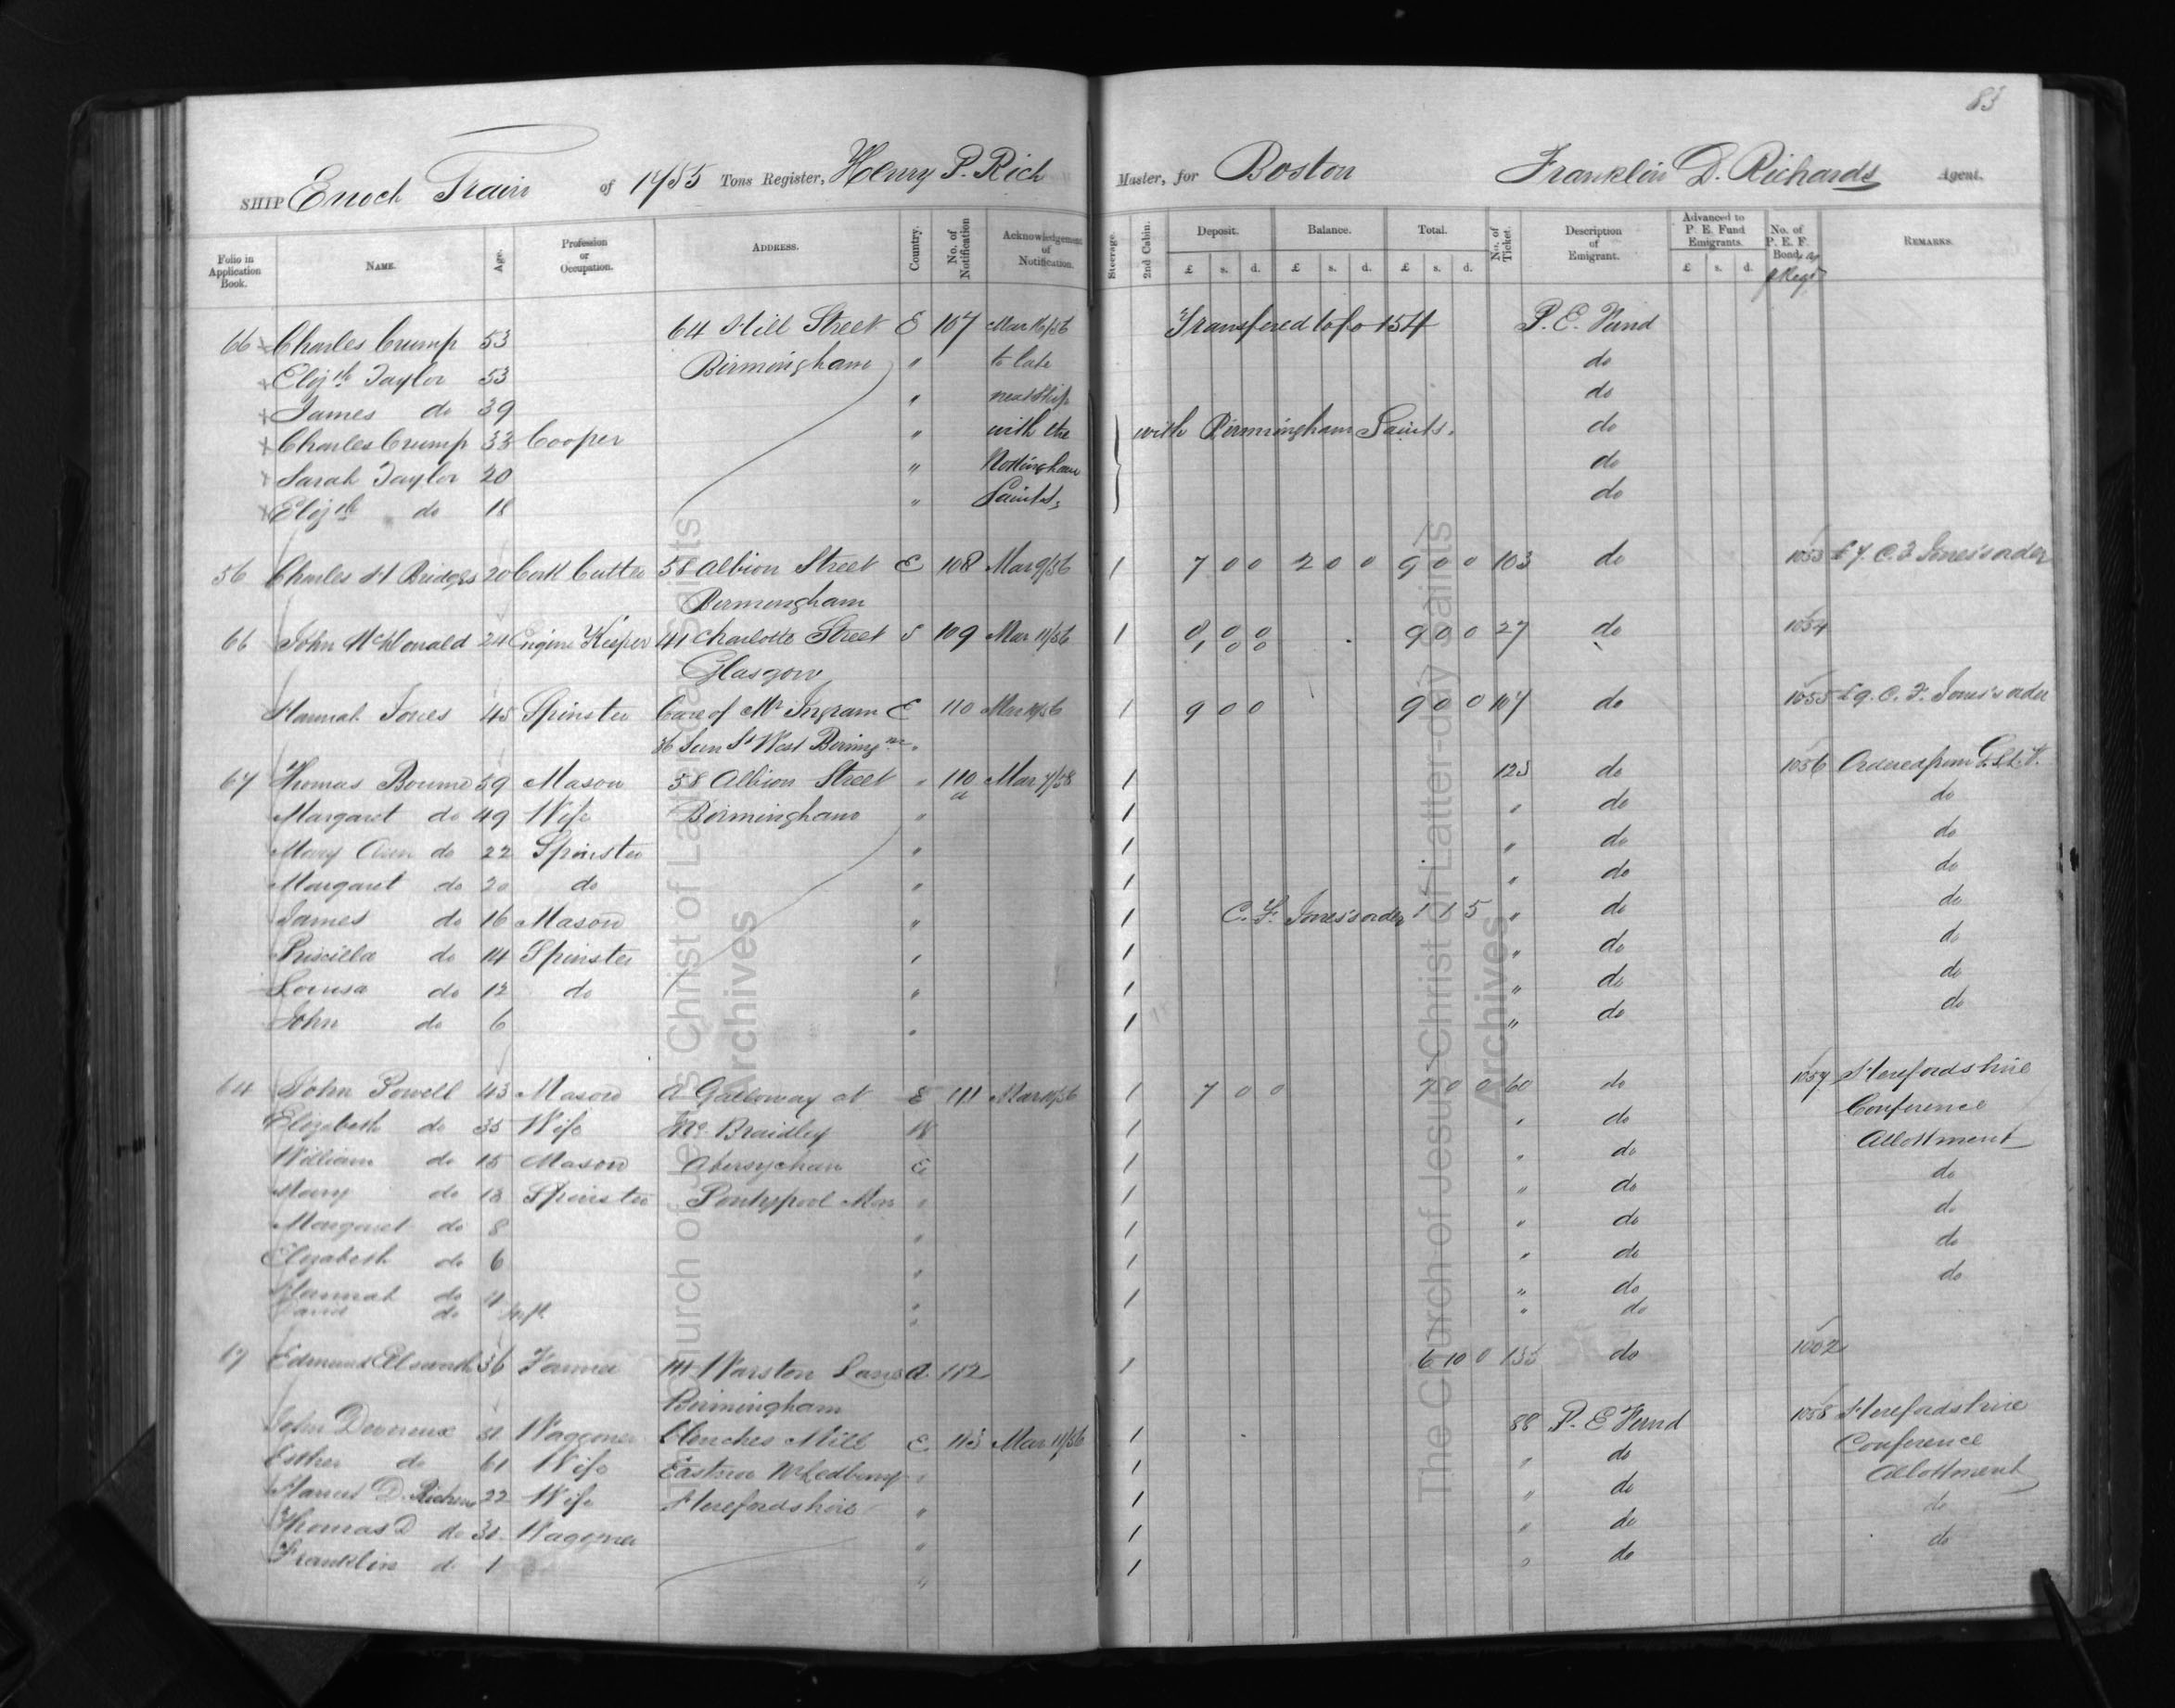 83
SHIP Enoch Train of 1455 Tons Register, Henry P. Rich Master, for Boston Franklin D. Richards Agent.
Folio in Application Book. NAME. Age. Profession or Occupation. ADDRESS. Country. No. of Notification Acknowledgement of Notification. Steerage. 2nd Cabin. Deposit. £ s. d. Balance. £ s. d. Total. £ s. d. No. of Ticket. Description of Emigrant. Advanced to P. E. Fund Emigrants. £ s. d. No. of P. E. F. Bond REMARKS.
66 x Charles Crump 53 64 Hill Street E 107 Mar 10/56 Transfered to fo 154 P. E. Fund
x Elizth Taylor 53 Birmingham " to late do
x James do 39 " next ship do
x Charles Crump 33 Cooper " with the with Birmingham Saints. do
x Sarah Taylor 20 " Nottingham do
x Elizth do 18 " Saints do
56 Charles H Bridges 20 Cork Cutter 58 Albion Street E 108 Mar 9/56 1 7 0 0 2 0 0 9 0 0 103 do 1053 £7. C. F. Jones's order
Birmingham
66 John McDonald 24 Engine Keeper 41 Charlotte Street S 109 Mar 11/56 1 8 0 0 9 0 0 27 do 1054
1 0 0
Glasgow
Hannah Jones 45 Spinster Care of Mr Ingram E 110 Mar 10/56 1 9 0 0 9 0 0 107 do 1055 £9. C. F. Jones's order
36 Sun St West Birmingm "
67 Thomas Bourne 59 Mason 58 Albion Street " 110 a Mar 7/56 1 123 do 1056 Ordered from G.S.L.V.
Margaret do 49 Wife Birmingham " 1 " do do
Mary Ann do 22 Spinster " 1 " do do
Margaret do 20 do " 1 " do do
James do 16 Mason " 1 C. F. Jones's order 1 1 5 " do do
Priscilla do 14 Spinster " 1 " do do
Louisa do 12 do " 1 " do do
John do 6 " 1 " do do
64 John Powell 43 Mason A Galloway at E 111 Mar 10/56 1 7 0 0 7 0 0 60 do 1057 Herefordshire
Elizabeth do 35 Wife Mr. Braidley W 1 " do Conference
William do 15 Mason Abersychan E 1 " do Allottment
Mary do 13 Spinster Pontypool Mon " 1 " do do
Margaret do 8 " 1 " do do
Elizabeth do 6 " 1 " do do
Hannah do 4 " 1 " do do
David do Inft " " do
17 Edmund Ellsworth 36 Farmer 144 Warston Lane A 112 1 6 10 0 do 1002
Birmingham
John Devereux Waggoner Clenches Mill E 113 Mar 11/56 1 88 P. E. Fund 1058 Herefordshire
Esther do 61 Wife Eastnor Nr Ledbury " 1 " do Conference
D. 22 Wife Herefordshire " 1 " do Allottment
Thomas D do Waggoner " 1 " do do
Franklin do 1 " 1 " do do
The Church of Jesus Christ of Latter-day Saints
Archives
The Church of Jesus Christ of Latter-day Saints
Archives